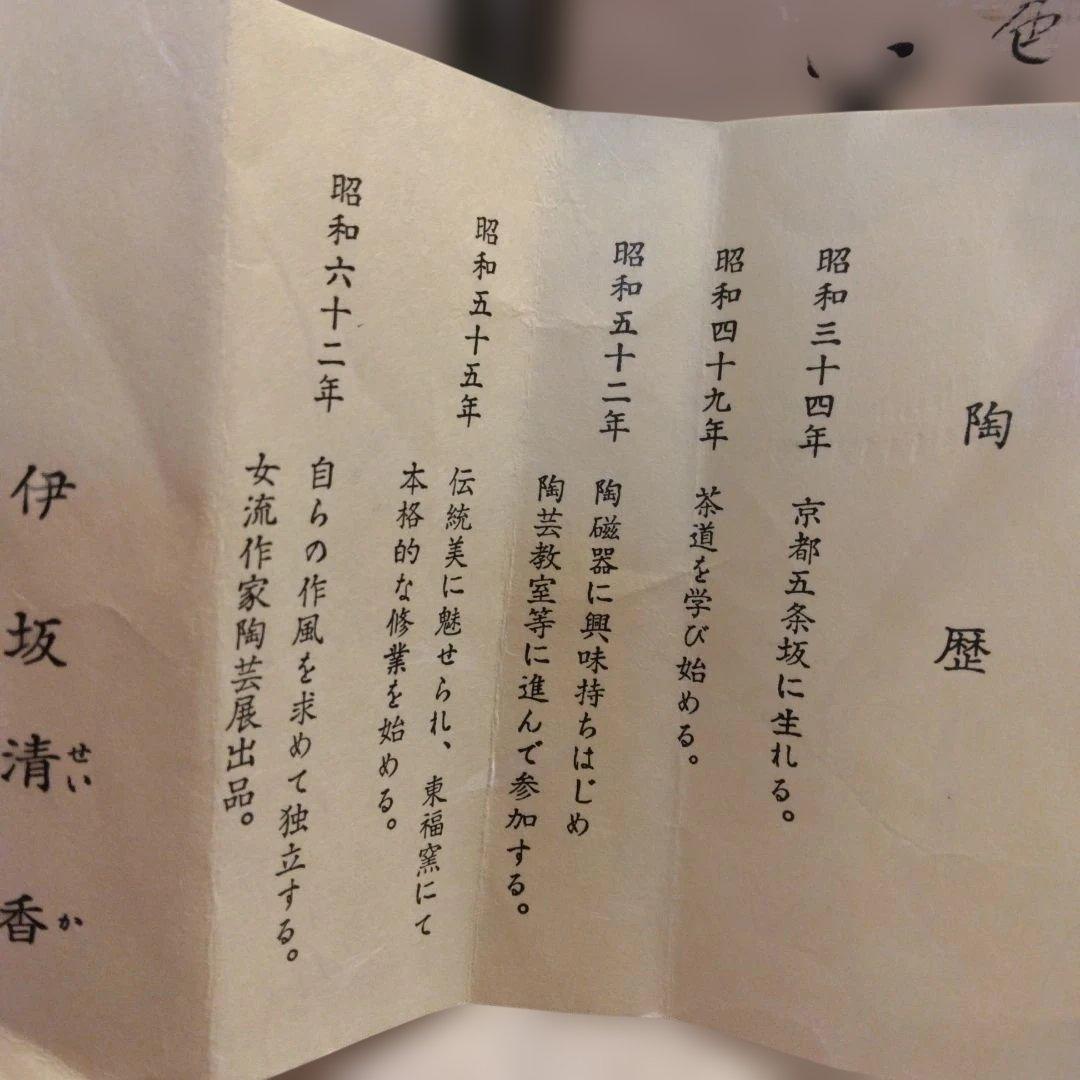 陶歴
昭和三十四年 京都五条坂に生れる。
昭和四十九年 茶道を学び始める。
昭和五十二年 陶磁器に興味持ちはじめ
陶芸教室等に進んで参加する。
昭和五十五年 伝統美に魅せられ、東福窯にて
本格的な修業を始める。
昭和六十二年 自らの作風を求めて独立する。
女流作家陶芸展出品。
伊坂清香
せいか